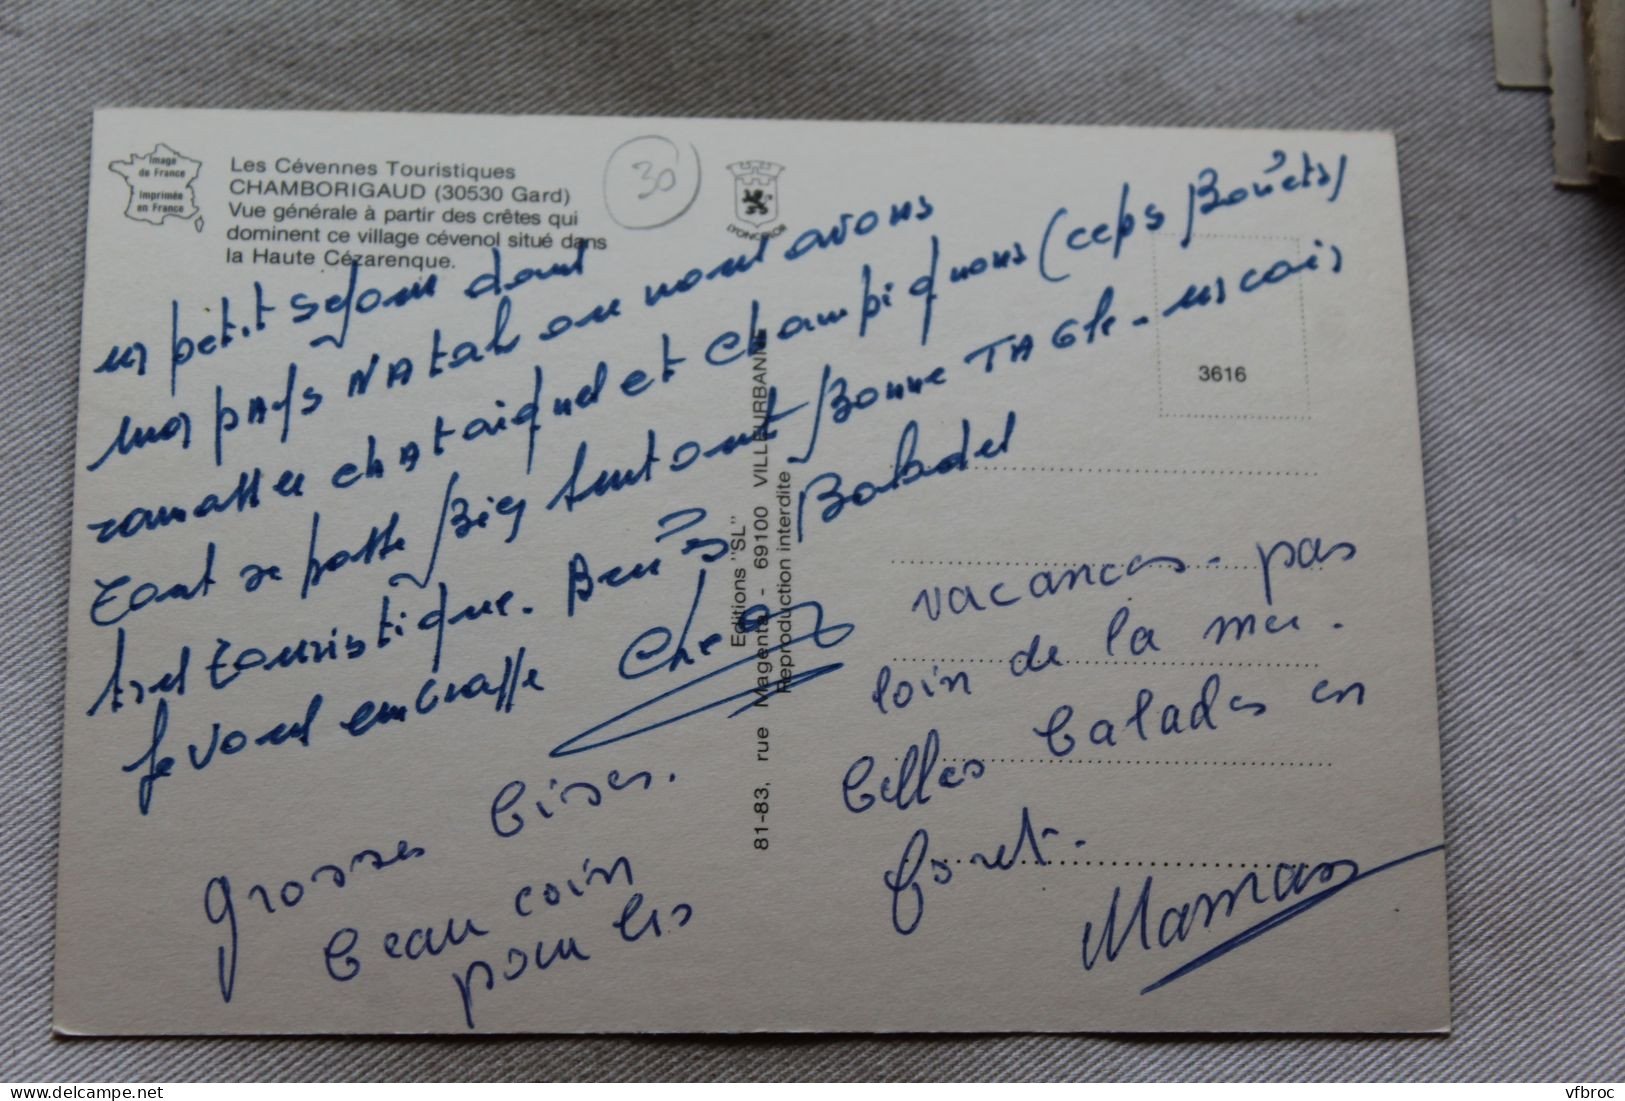 Image
de France
Imprimée
en France
Les Cévennes Touristiques
CHAMBORIGAUD (30530 Gard)
Vue générale à partir des crêtes qui
dominent ce village cévenol situé dans
la Haute Cézarenque.
30
LYONCOLOR
3616
Editions "SL"
81-83, rue Magenta - 69100 VILLEURBANNE
Reproduction interdite
un petit sejour dans
mon pays NAtal ou nous avons
ramasser chAtaignes et champignons (ceps
tout se passe bien surtout Bonne TABle - un coin
tres touristique.
je vous embrasse
Grosses bises.
beau coin
pour les
vacances - pas
loin de la mer.
belles balades en
foret.
Maman
vfbroc